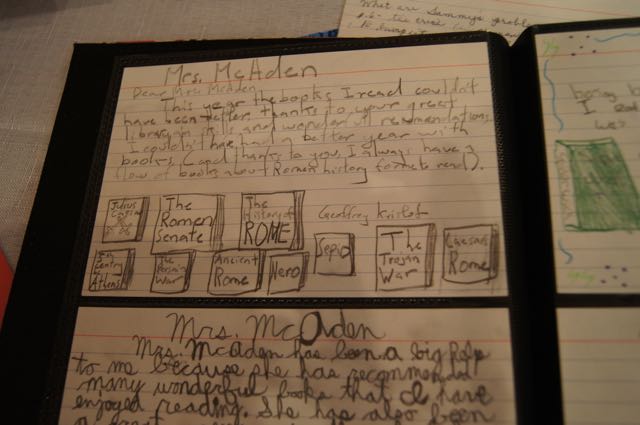 What are Sammy's
Mrs. McAden
Dear Mrs. McAden
This year the books I read couldn't
have been better thanks to your great
librarian skills and wonderful recomendations.
I couldn't have had a better year with
books (and thanks to you, I always have a
flow of books about Roman history for me to read).
Geoffrey Kristof
Julius
The
Roman
Senate
The
History of
ROME
Sepio
The
Trojan
War
Caesars
Rome
Athens
The
War
Ancient
Rome
Nero
Mrs. McAden
Mrs. McAden has been a big help
to me because she has recommended
many wonderful books that I have
enjoyed reading. She has also been